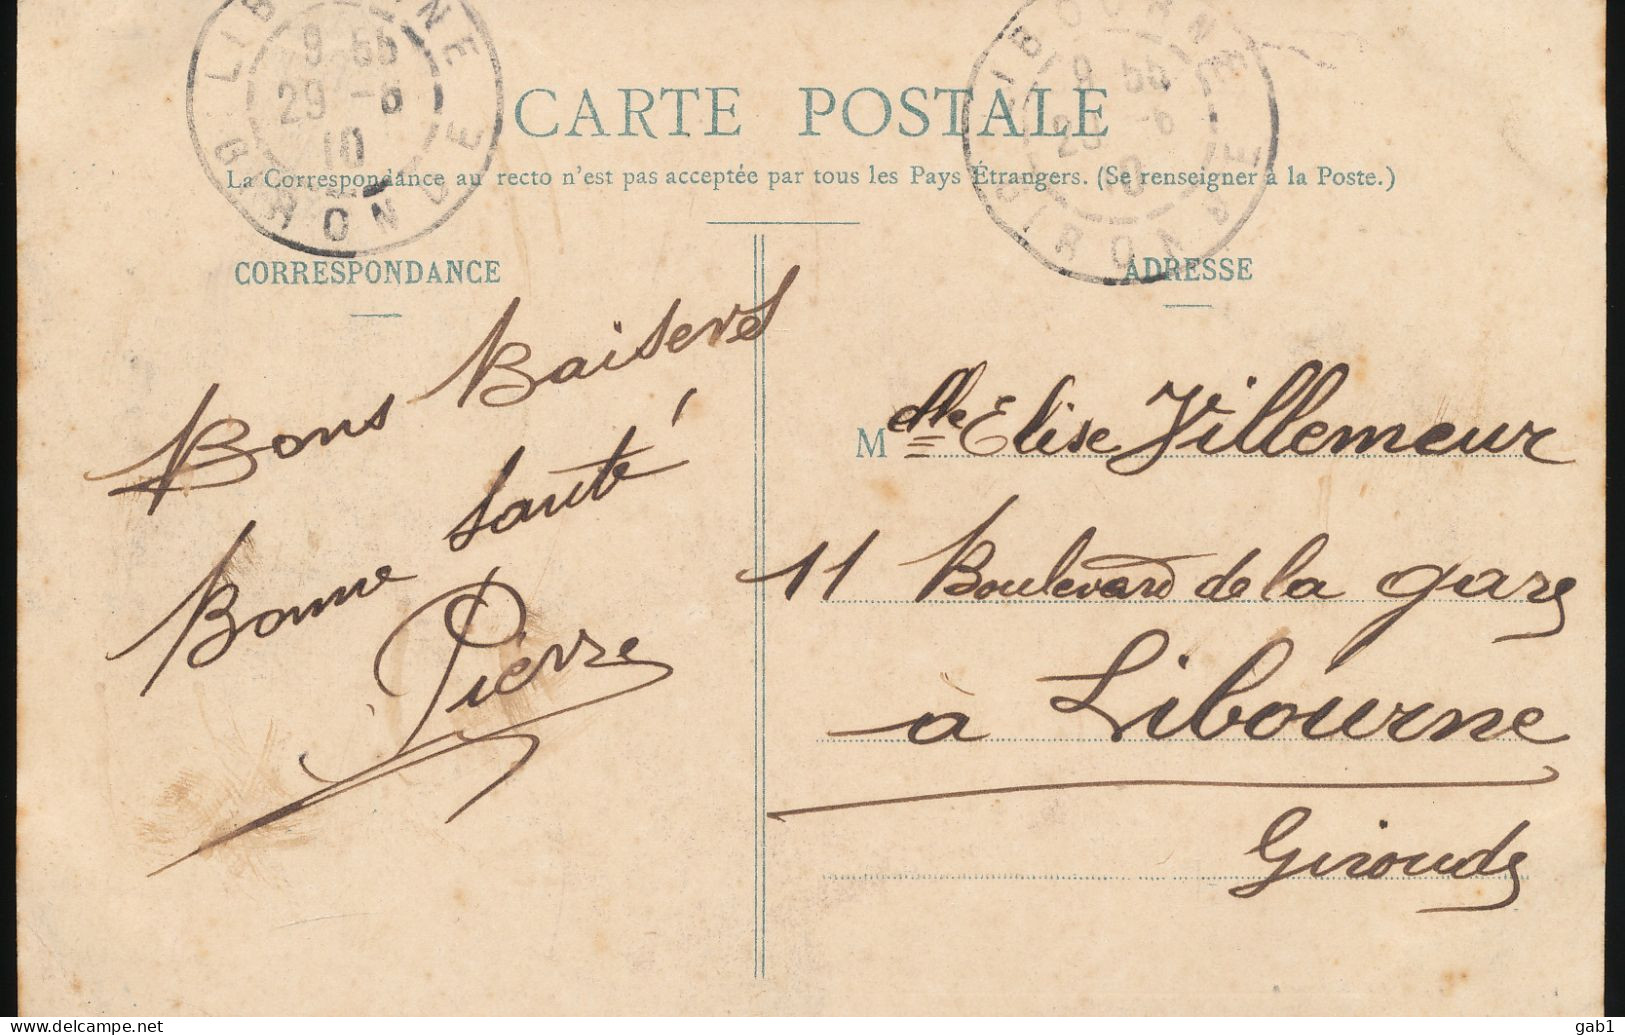 LIBOURNE
9 55
29 -6
10
GIRONDE
LIBOURNE
9 55
29 -6
10
GIRONDE
CARTE POSTALE
La Correspondance au recto n'est pas acceptée par tous les Pays Étrangers. (Se renseigner à la Poste.)
CORRESPONDANCE
Bons Baisers
Bonne santé
Pierre
ADRESSE
Mdlle Elise Villemeur
11 Boulevard de la gare
à Libourne
Gironde
delcampe.net
gab1